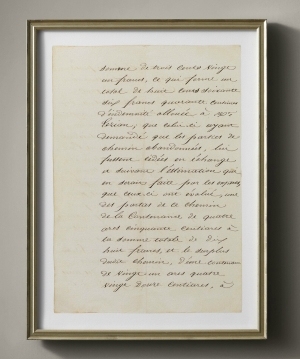 somme de huit cents vingt
un francs, ce qui forme un
total de huit cents soixante
dix francs quarante centimes
d'indemnité allouée à
que celui ci ayant
demandé que les parties de
chemin abandonnées, lui
fussent cédées en échange
et suivant l'estimation qui
en serait faite par les experts
que ceux ci ont évalué, une
des parties de ce chemin
de la Contenance de quatre
ares cinquante centiares à
la somme totale de dix
huit francs, et le surplus
dudit chemin, d'une contenance
de vingt un ares quatre
vingt centiares, à